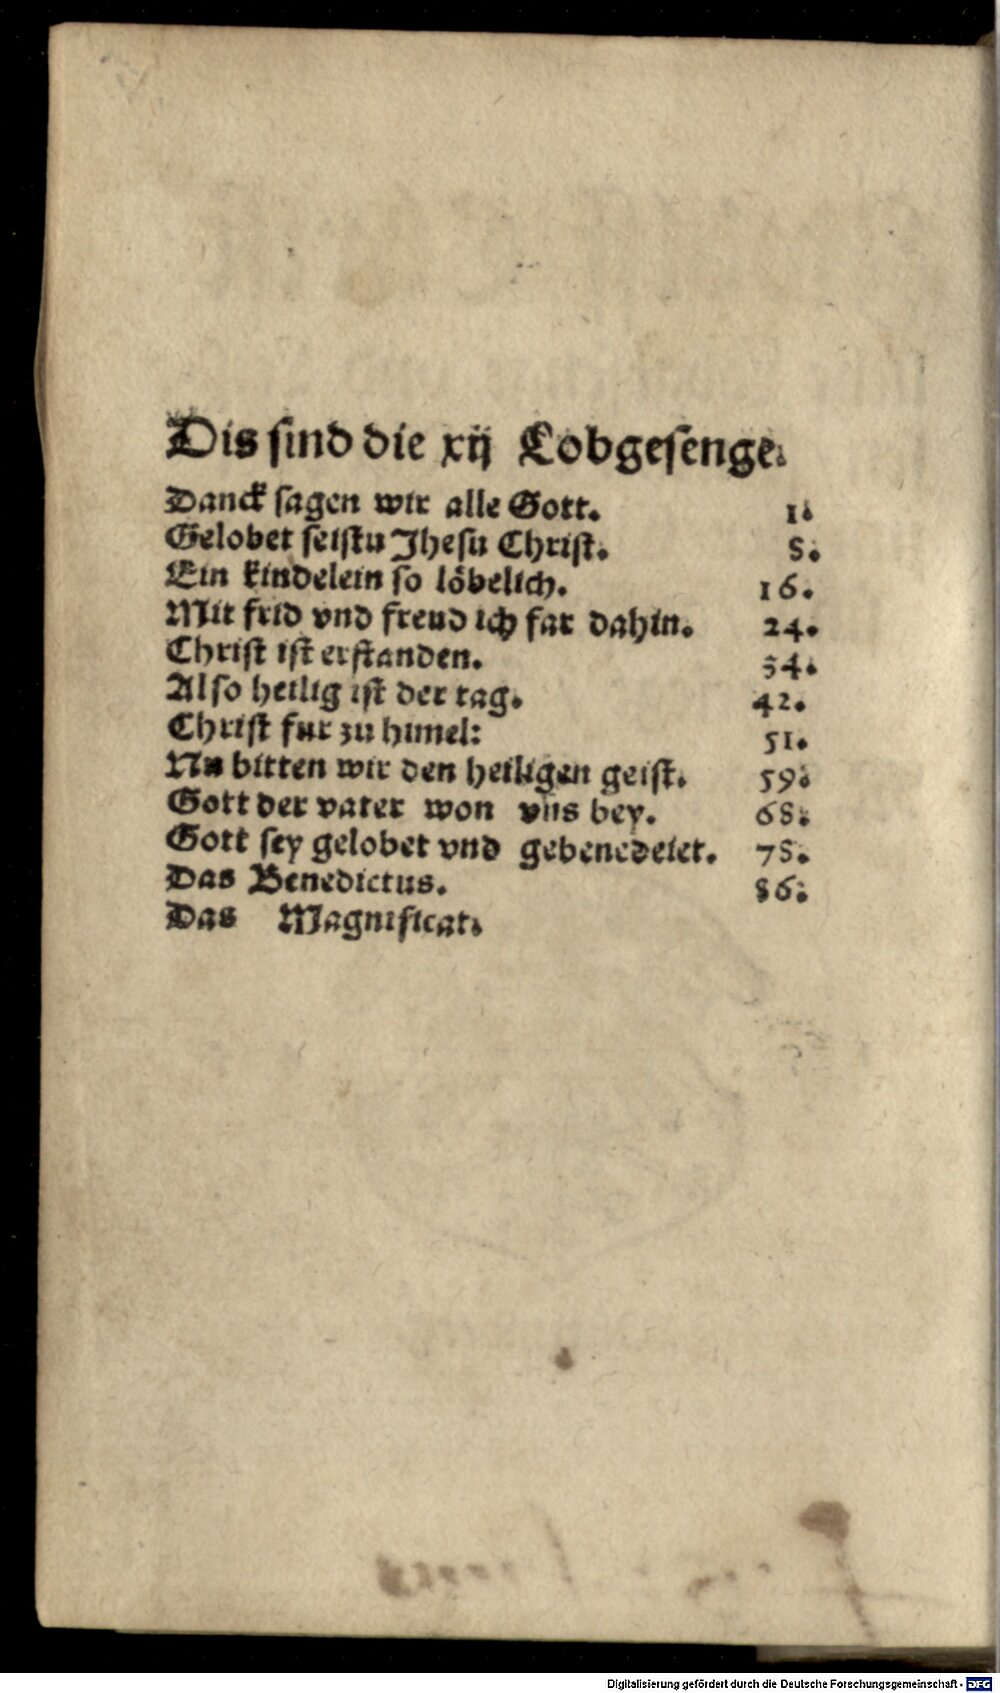 Dis sind die xij Lobgesenge.
Danck sagen wir alle Gott. 1.
Gelobet seistu Jhesu Christ. 8.
Ein kindelein so löbelich. 16.
Mit frid vnd freud ich far dahin. 24.
Christ ist erstanden. 34.
Also heilig ist der tag. 42.
Christ fur zu himel: 51.
Nu bitten wir den heiligen geist. 59.
Gott der vater won vns bey. 68.
Gott sey gelobet vnd gebenedeiet. 78.
Das Benedictus. 86.
Das Magnificat.
Digitalisierung gefördert durch die Deutsche Forschungsgemeinschaft - DFG